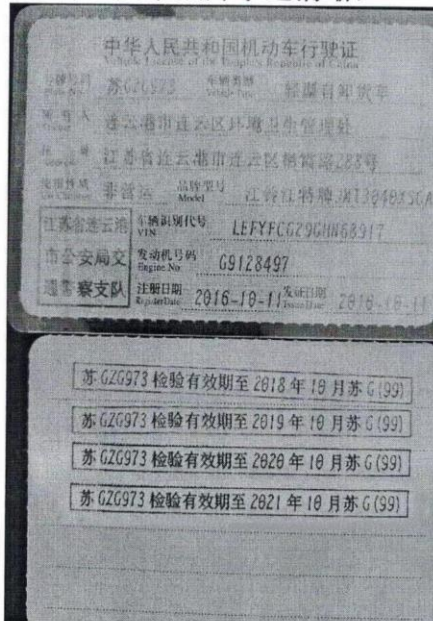 中华人民共和国机动车行驶证
Vehicle License of the People's Republic of China
号牌号码 苏GZG973 车辆类型 轻型自卸货车
所有人 连云港市连云区环境卫生管理处
住 址 江苏省连云港市连云区栖霞路288号
使用性质 非营运 品牌型号 Model 江铃江特牌JMT3040XSGA
江苏省连云港 车辆识别代号 VIN LEFYFCG29GHN68917
市公安局交 发动机号码 Engine No. G9128497
通警察支队 注册日期 Register Date 2016-10-11 发证日期 Issue Date 2016-10-11
苏GZG973检验有效期至2018年10月苏G(99)
苏GZG973检验有效期至2019年10月苏G(99)
苏GZG973检验有效期至2020年10月苏G(99)
苏GZG973检验有效期至2021年10月苏G(99)